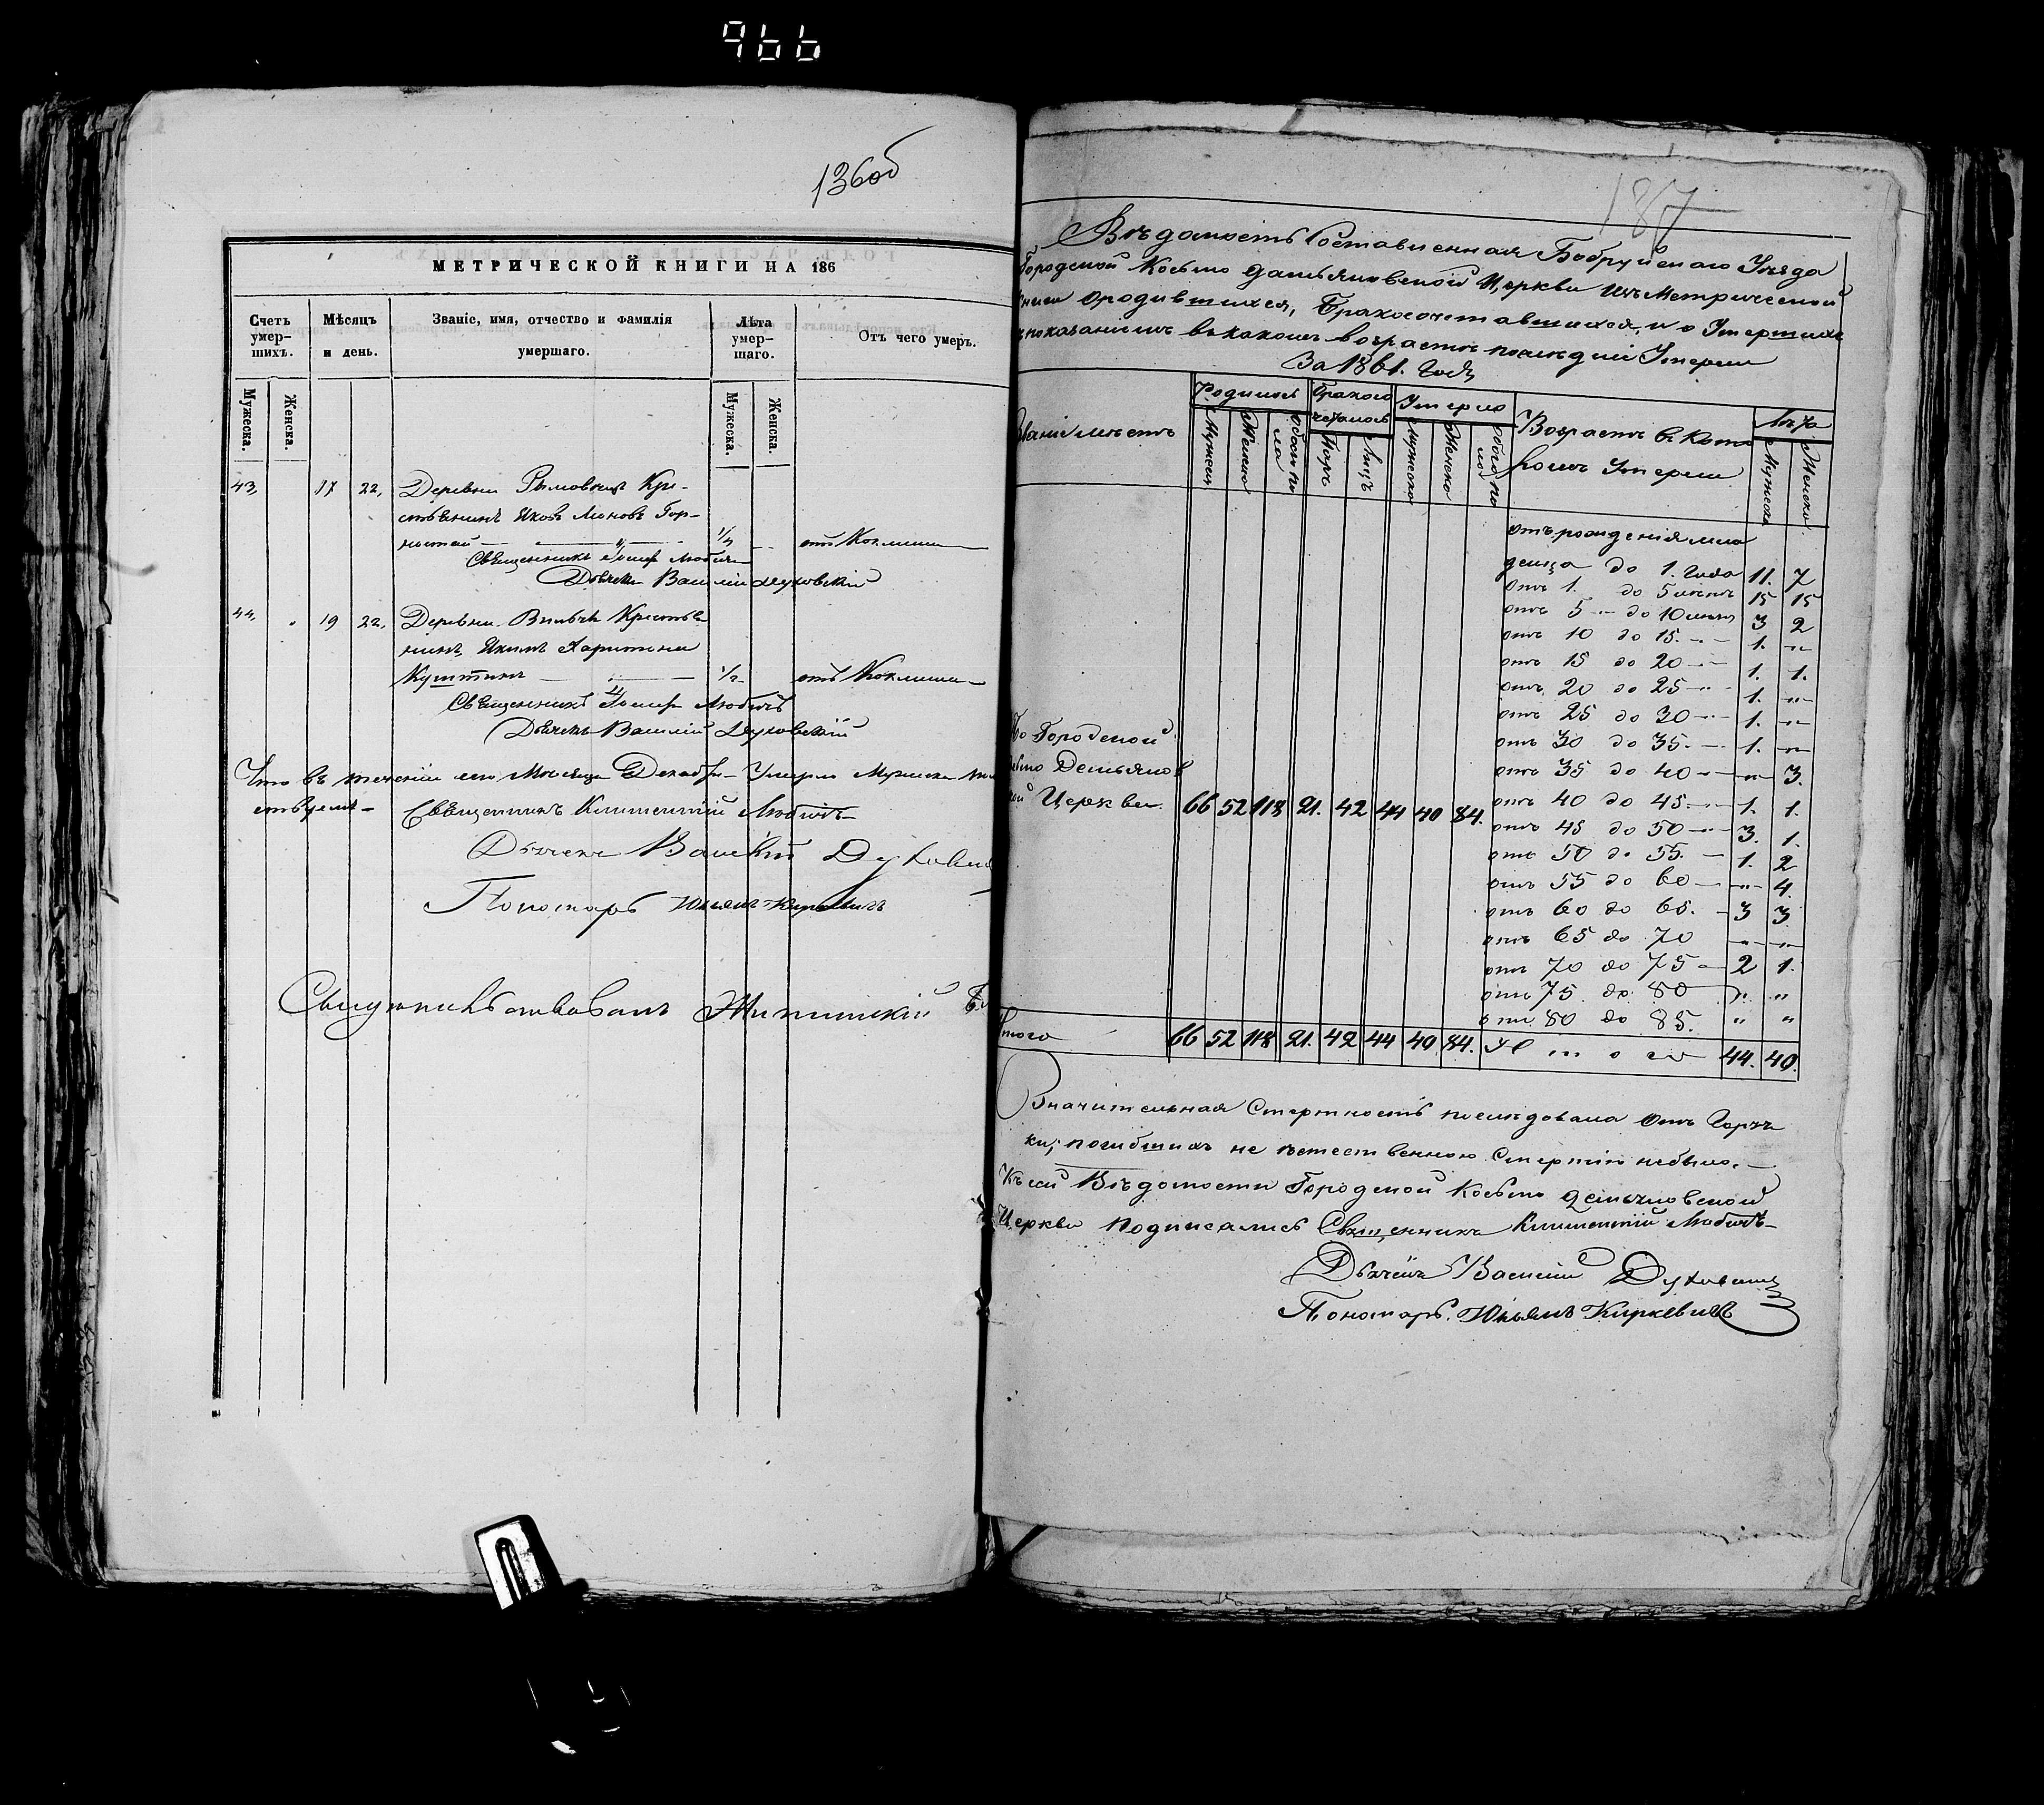 966
136об
МЕТРИЧЕСКОЙ КНИГИ НА 186
Счетъ умер- шихъ.
Мѣсяцъ и день.
Званіе, имя, отчество и фамилія умершаго.
Лѣта умер- шаго.
Отъ чего умеръ.
Мужеска. Женска. Мужеска. Женска.
43, 17 22, Деревни Кре-
стьянинъ Яковъ Гор-
ностай 1/4 отъ Коклюша
Священникъ
Дьячекъ Василій Духовскій
44, " 19 22, Деревни Крестья
нинъ, Якимъ Харитоновъ
1/2 отъ Коклюша
Священникъ Любичъ
Дьячекъ Василій Духовскій
Что въ теченіи сего Мѣсяца Декабря Умерло Мужеска
Священникъ Климентій Любичъ
Дьячекъ Василій Духовскі
Пономарь Юльянъ Киркевичъ
Свидѣтельствовалъ
187
Вѣдомость Составленная Бобруйскаго Уѣзда
Городской Косьмо Даміяновской Церкви изъ Метрической
книги о родившихся, Бракосочетавшихся, и о Умершихъ
показаніемъ въ какомъ возрастѣ послѣдніе Умерли
За 1861. Годъ
Званіе мѣстъ
Родилось
Бракосо четалось
Умерло
Возрастъ въ кото ромъ Умерли
Лѣта
Мужеска Женска Обоего по ла Паръ Лицъ Мужеска Женска Обоего по ла Мужеска Женска
отъ рожденія мла
денца до 1. Года 11. 7
отъ 1. до 5 лѣтъ 15 15
отъ 5 до 10 лѣтъ 3 2
отъ 10 до 15. 1. "
отъ 15 до 20 1. 1.
отъ 20 до 25 1. "
отъ 25 до 30 1. "
отъ 30 до 35. 1. "
отъ 35 до 40 " 3.
отъ 40 до 45. 1. 1.
отъ 45 до 50 3. 1.
отъ 50 до 55. 1. 2
отъ 55 до 60 " 4.
отъ 60 до 65. 3 3
отъ 65 до 70 " "
отъ 70 до 75 2 1.
отъ 75 до 80 " "
отъ 80 до 85. " "
По Городской
Косьмо Демьянов
ской Церкви. 66 52 118 21. 42 44 40 84.
Итого 66 52 118 21. 42 44 40 84. Итого 44. 40.
Значительная Смертность послѣдовала отъ Горяч
ки; погибшихъ не естественною Смертію небыло.
Къ сей Вѣдомости Городской Косьмо Демьяновской
Церкви подписались Священникъ Климентій Любичъ
Дьячекъ Василій Духовскій
Пономарь Юльянъ Киркевичъ